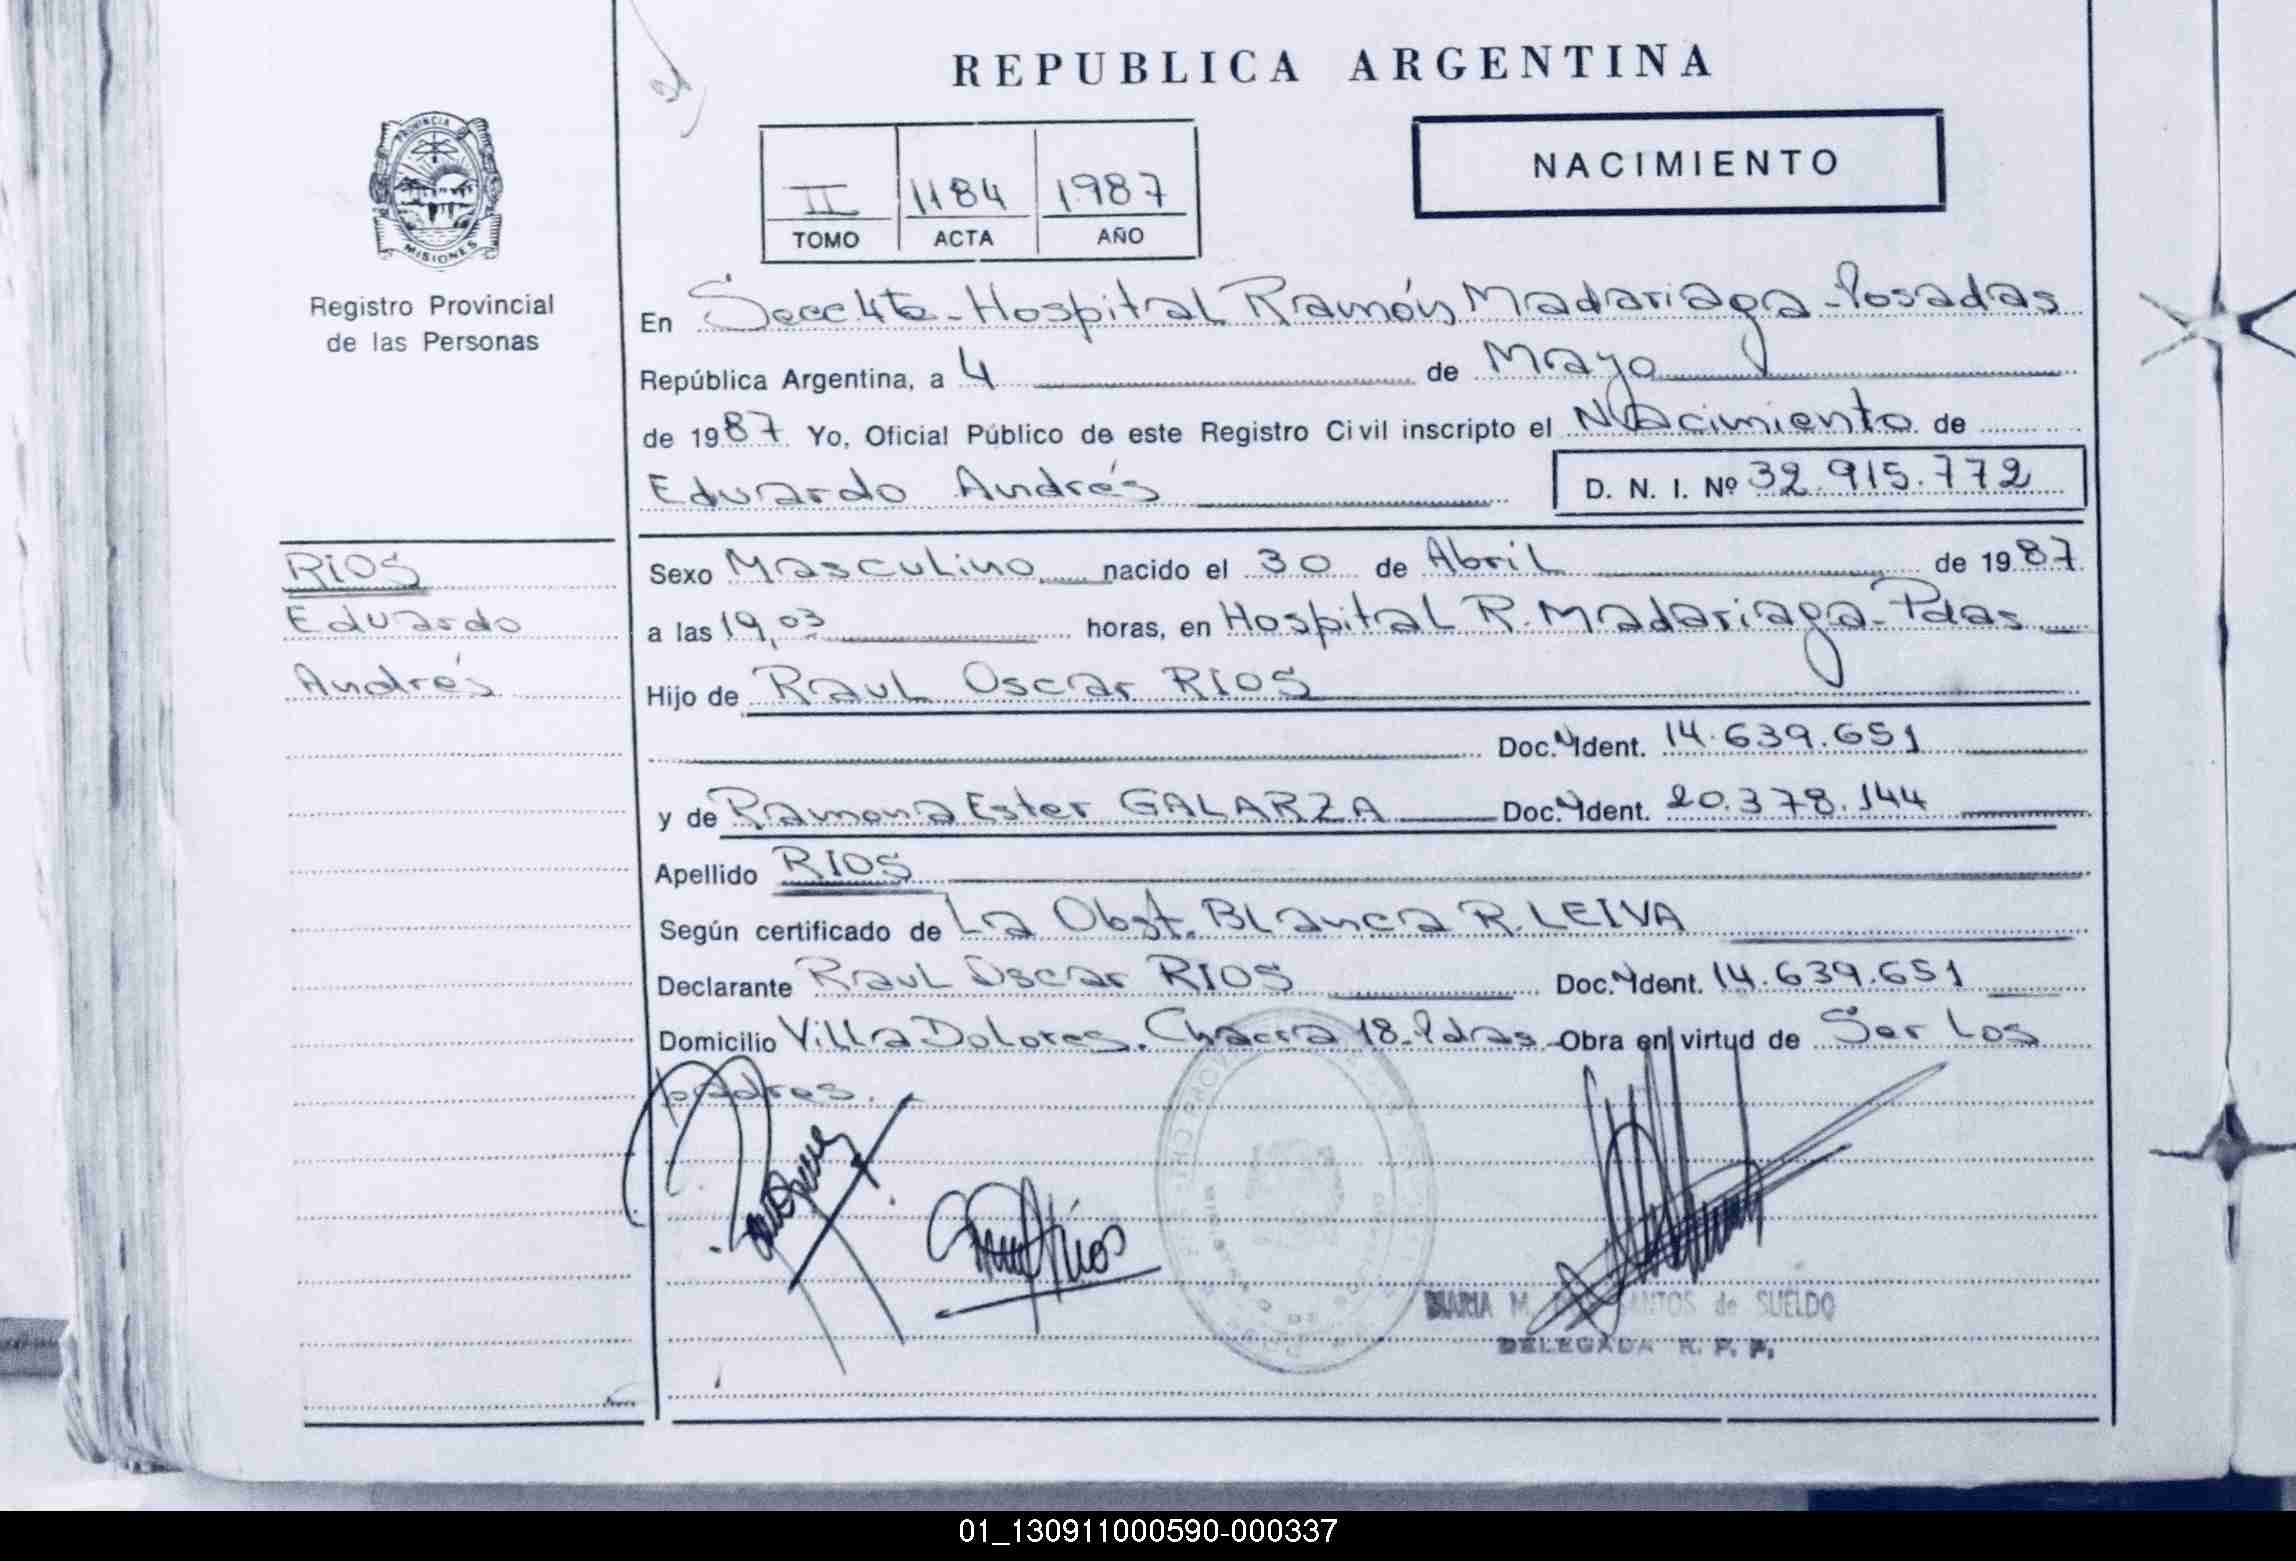 REPUBLICA ARGENTINA
PROVINCIA
MISIONES
Registro Provincial
de las Personas
II 1184 1987
TOMO ACTA AÑO
NACIMIENTO
En Secc 4ta - Hospital Ramón Madariaga - Posadas
República Argentina, a 4 de Mayo
de 1987 Yo, Oficial Público de este Registro Civil inscripto el Nacimiento de
Eduardo Andrés D. N. I. Nº 32.915.772
RIOS
Eduardo
Andrés
Sexo Masculino nacido el 30 de Abril de 1987
a las 19,03 horas, en Hospital R. Madariaga - Pdas
Hijo de Raul Oscar RIOS
Doc. Ident. 14.639.651
y de Ramona Ester GALARZA Doc. Ident. 20.378.144
Apellido RIOS
Según certificado de La Obst. Blanca R. LEIVA
Declarante Raul Oscar RIOS Doc. Ident. 14.639.651
Domicilio Villa Dolores. Chacra 18 - Pdas - Obra en virtud de Ser Los
padres.
MARIA M. SANTOS de SUELDO
DELEGADA R. P. P.
01_130911000590-000337